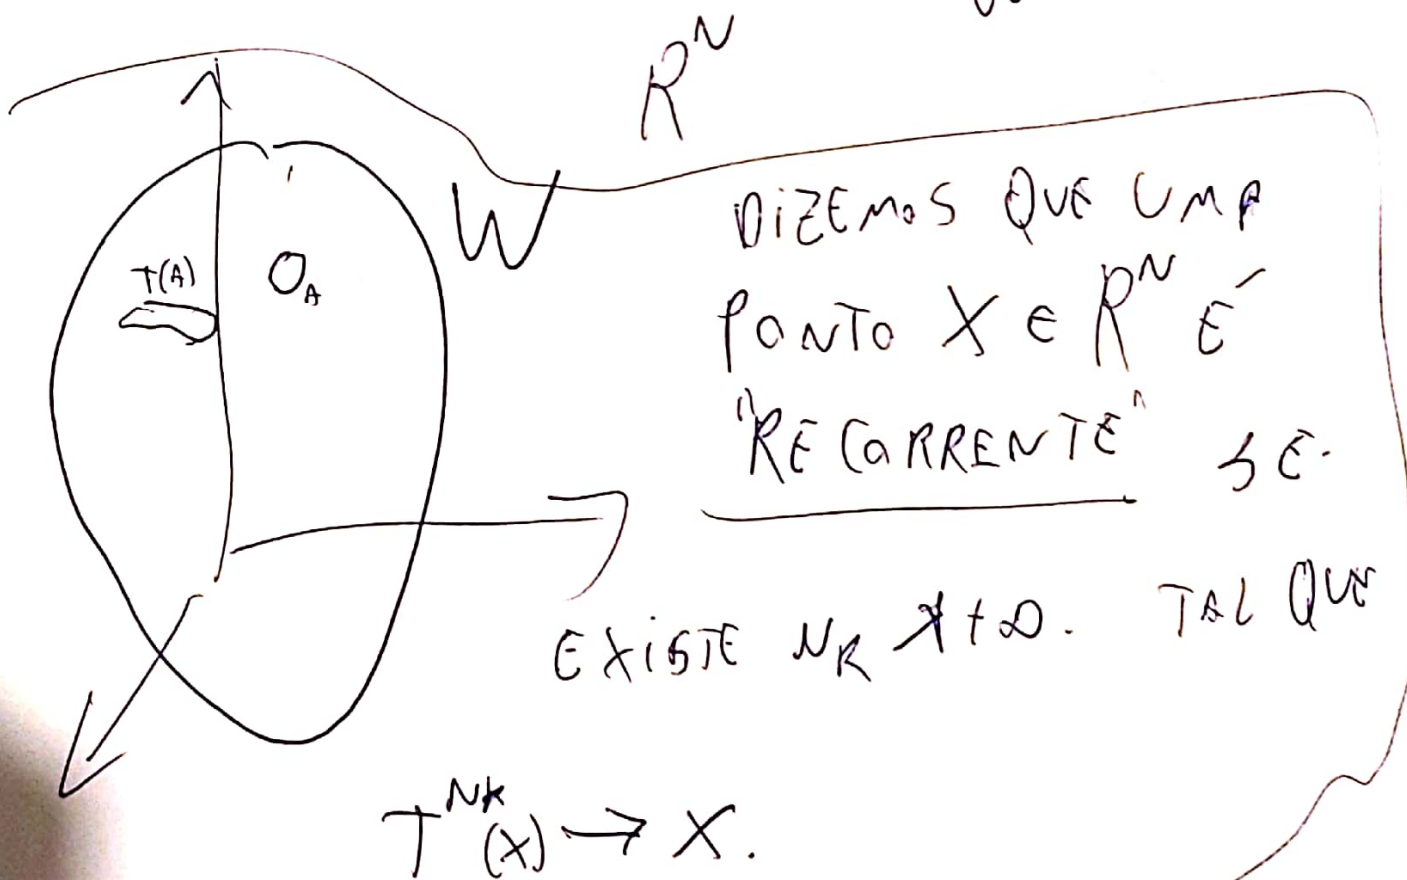 R^N
W
T(A)
O_A
DIZEMOS QUE UMA
PONTO X ∈ R^N É
"RECORRENTE" SE.
EXISTE N_K ↗ +∞. TAL QUE
T^{NK}(X) → X.